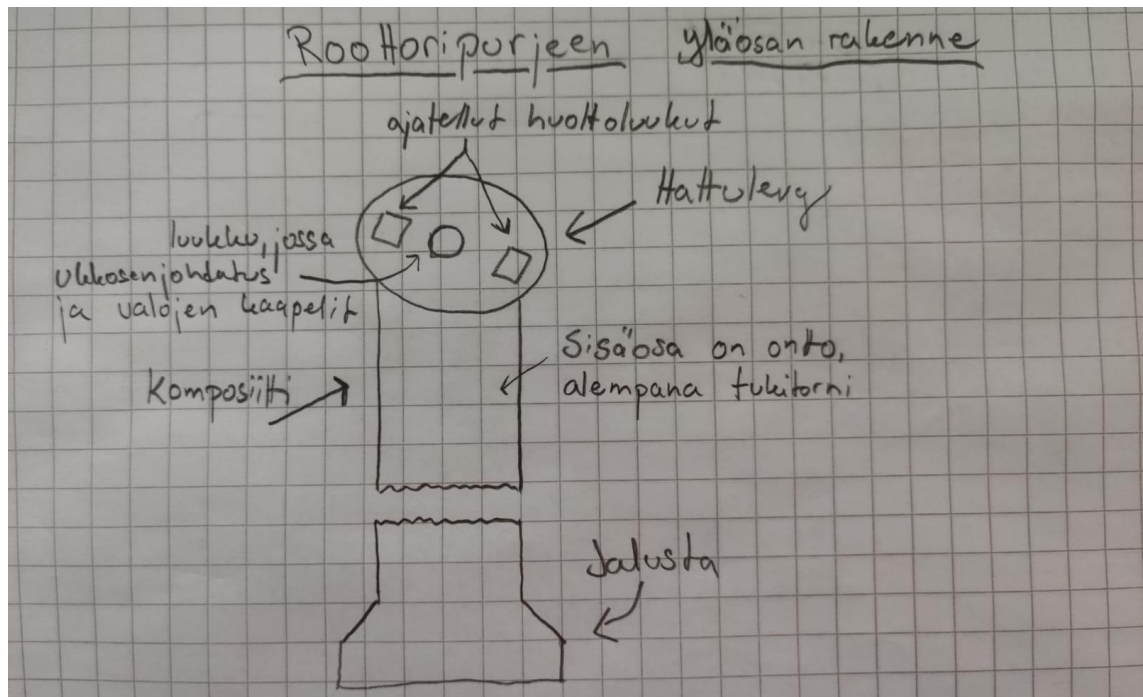 Roottoripurjeen yläosan rakenne
ajatellut huoltoluukut
Hattulevy
luukku, jossa
ukkosenjohdatus
ja valojen kaapelit
Sisäosa on ontto,
alempana tukitorni
Komposiitti
Jalusta